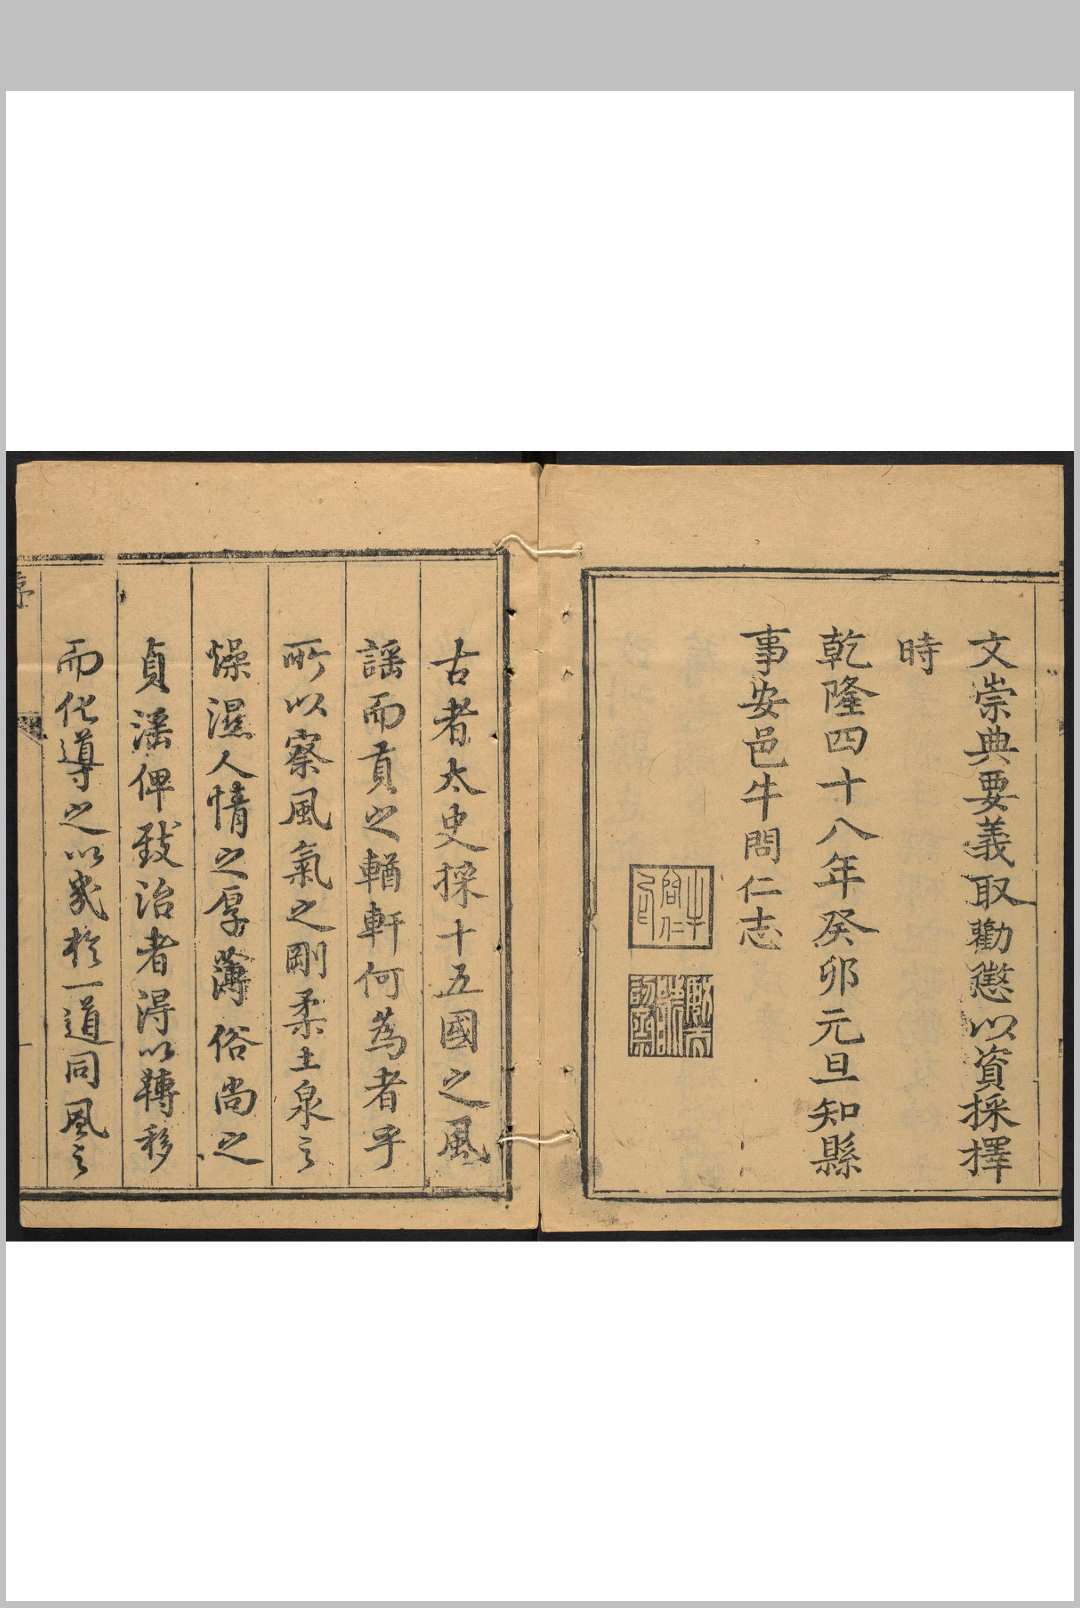 文崇典要義取勸懲以資採擇
時
乾隆四十八年癸卯元旦知縣
事安邑牛問仁志
牛問仁印
古者太史採十五國之風
謡而貢之輶軒何為者乎
所以察風氣之剛柔土泉之
燥濕人情之厚薄俗尚之
貞滛俾致治者得以轉移
而化導之以幾於一道同風之
序